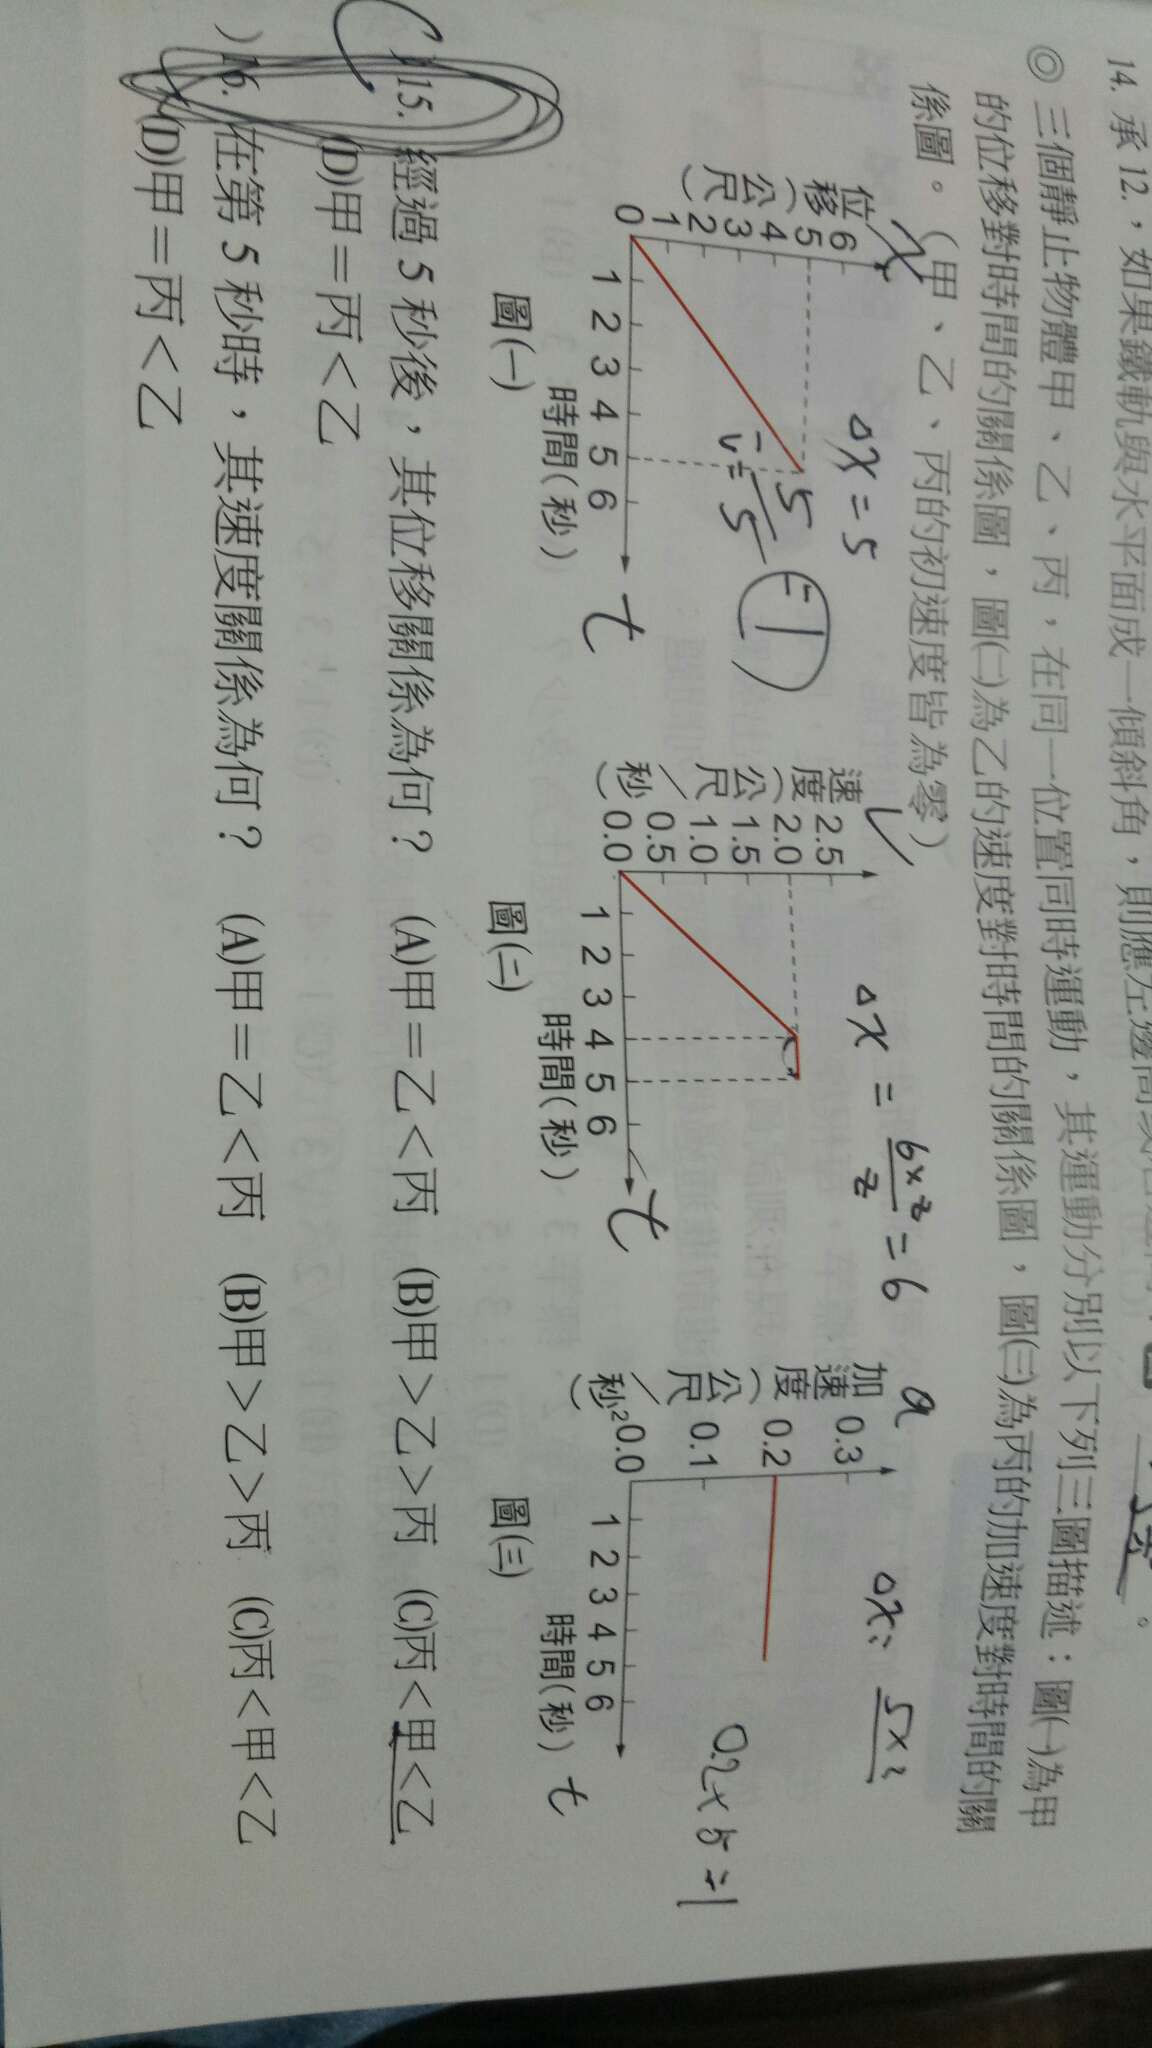 14. 承 12.，如果鐵軌與水平面成一傾斜角，則應左邊高
◎ 三個靜止物體甲、乙、丙，在同一位置同時運動，其運動分別以下列三圖描述：圖㈠為甲
的位移對時間的關係圖，圖㈡為乙的速度對時間的關係圖，圖㈢為丙的加速度對時間的關
係圖。（甲、乙、丙的初速度皆為零）
位移(公尺)
x
6
5
4
3
2
1
0
1 2 3 4 5 6
時間(秒)
t
圖(一)
Δx = 5
v = 5/5 = 1
速度(公尺/秒)
V
2.5
2.0
1.5
1.0
0.5
0.0
1 2 3 4 5 6
時間(秒)
t
圖(二)
Δx = 6×2/2 = 6
加速度(公尺/秒²)
a
0.3
0.2
0.1
0.0
1 2 3 4 5 6
時間(秒)
t
圖(三)
Δx =
0.2×5=1
( C )15. 經過 5 秒後，其位移關係為何？ (A)甲＝乙＜丙 (B)甲＞乙＞丙 (C)丙＜甲＜乙
(D)甲＝丙＜乙
)16. 在第 5 秒時，其速度關係為何？ (A)甲＝乙＜丙 (B)甲＞乙＞丙 (C)丙＜甲＜乙
(D)甲＝丙＜乙